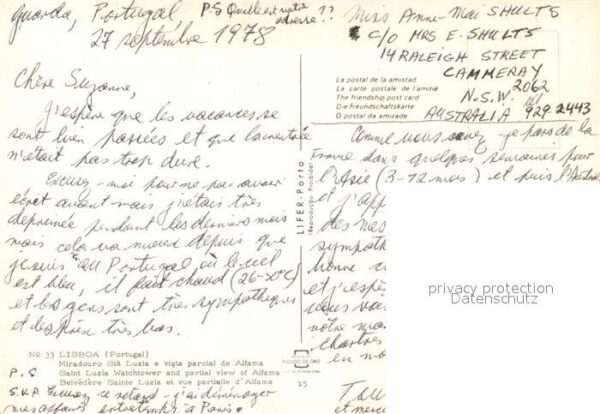 Guarda, Portugal
27 septembre 1978
P.S Quelle est votre adresse??
Chère Suzanne,
J'espère que les vacances se
sont bien passées et que la rentrée
n'était pas trop dure.
Excusez-moi pour ne pas avoir
écrit avant mais j'étais très
deprimée pendant les derniers mois
mais cela va mieux depuis que
je suis au Portugal où le ciel
est bleu, il fait chaud (26-30°C)
et les gens sont très sympathiques
et les prix très bas.
Nº 33 LISBOA (Portugal)
Miradouro Stª Luzia e vista parcial de Alfama
Saint Luzia Watchtower and partial view of Alfama
Belvédère Sainte Luzia et vue partielle d'Alfama
P.S
S.V.P. Excusez ce retard - j'ai déménager
mes affaires entretemps à Paris.
LIFER-Porto
(Reprodução Proibida)
15
Miss Anne-Mai SHULTS
c/o MRS E. SHULTS
14 RALEIGH STREET
CAMMERAY
N.S.W. 2062
AUSTRALIA 929 2443
La postal de la amistad
La carte postale de l'amitié
The friendship post card
Die freundschaftskarte
O postal da amizade
Comme vous savez je pars de la
France dans quelques semaines pour
l'Asie (3-12 mois) et puis
et j'app
des mes
sympath
bonne
et j'espè
vous
votre
chartres
en
et merc
privacy protection
Datenschutz